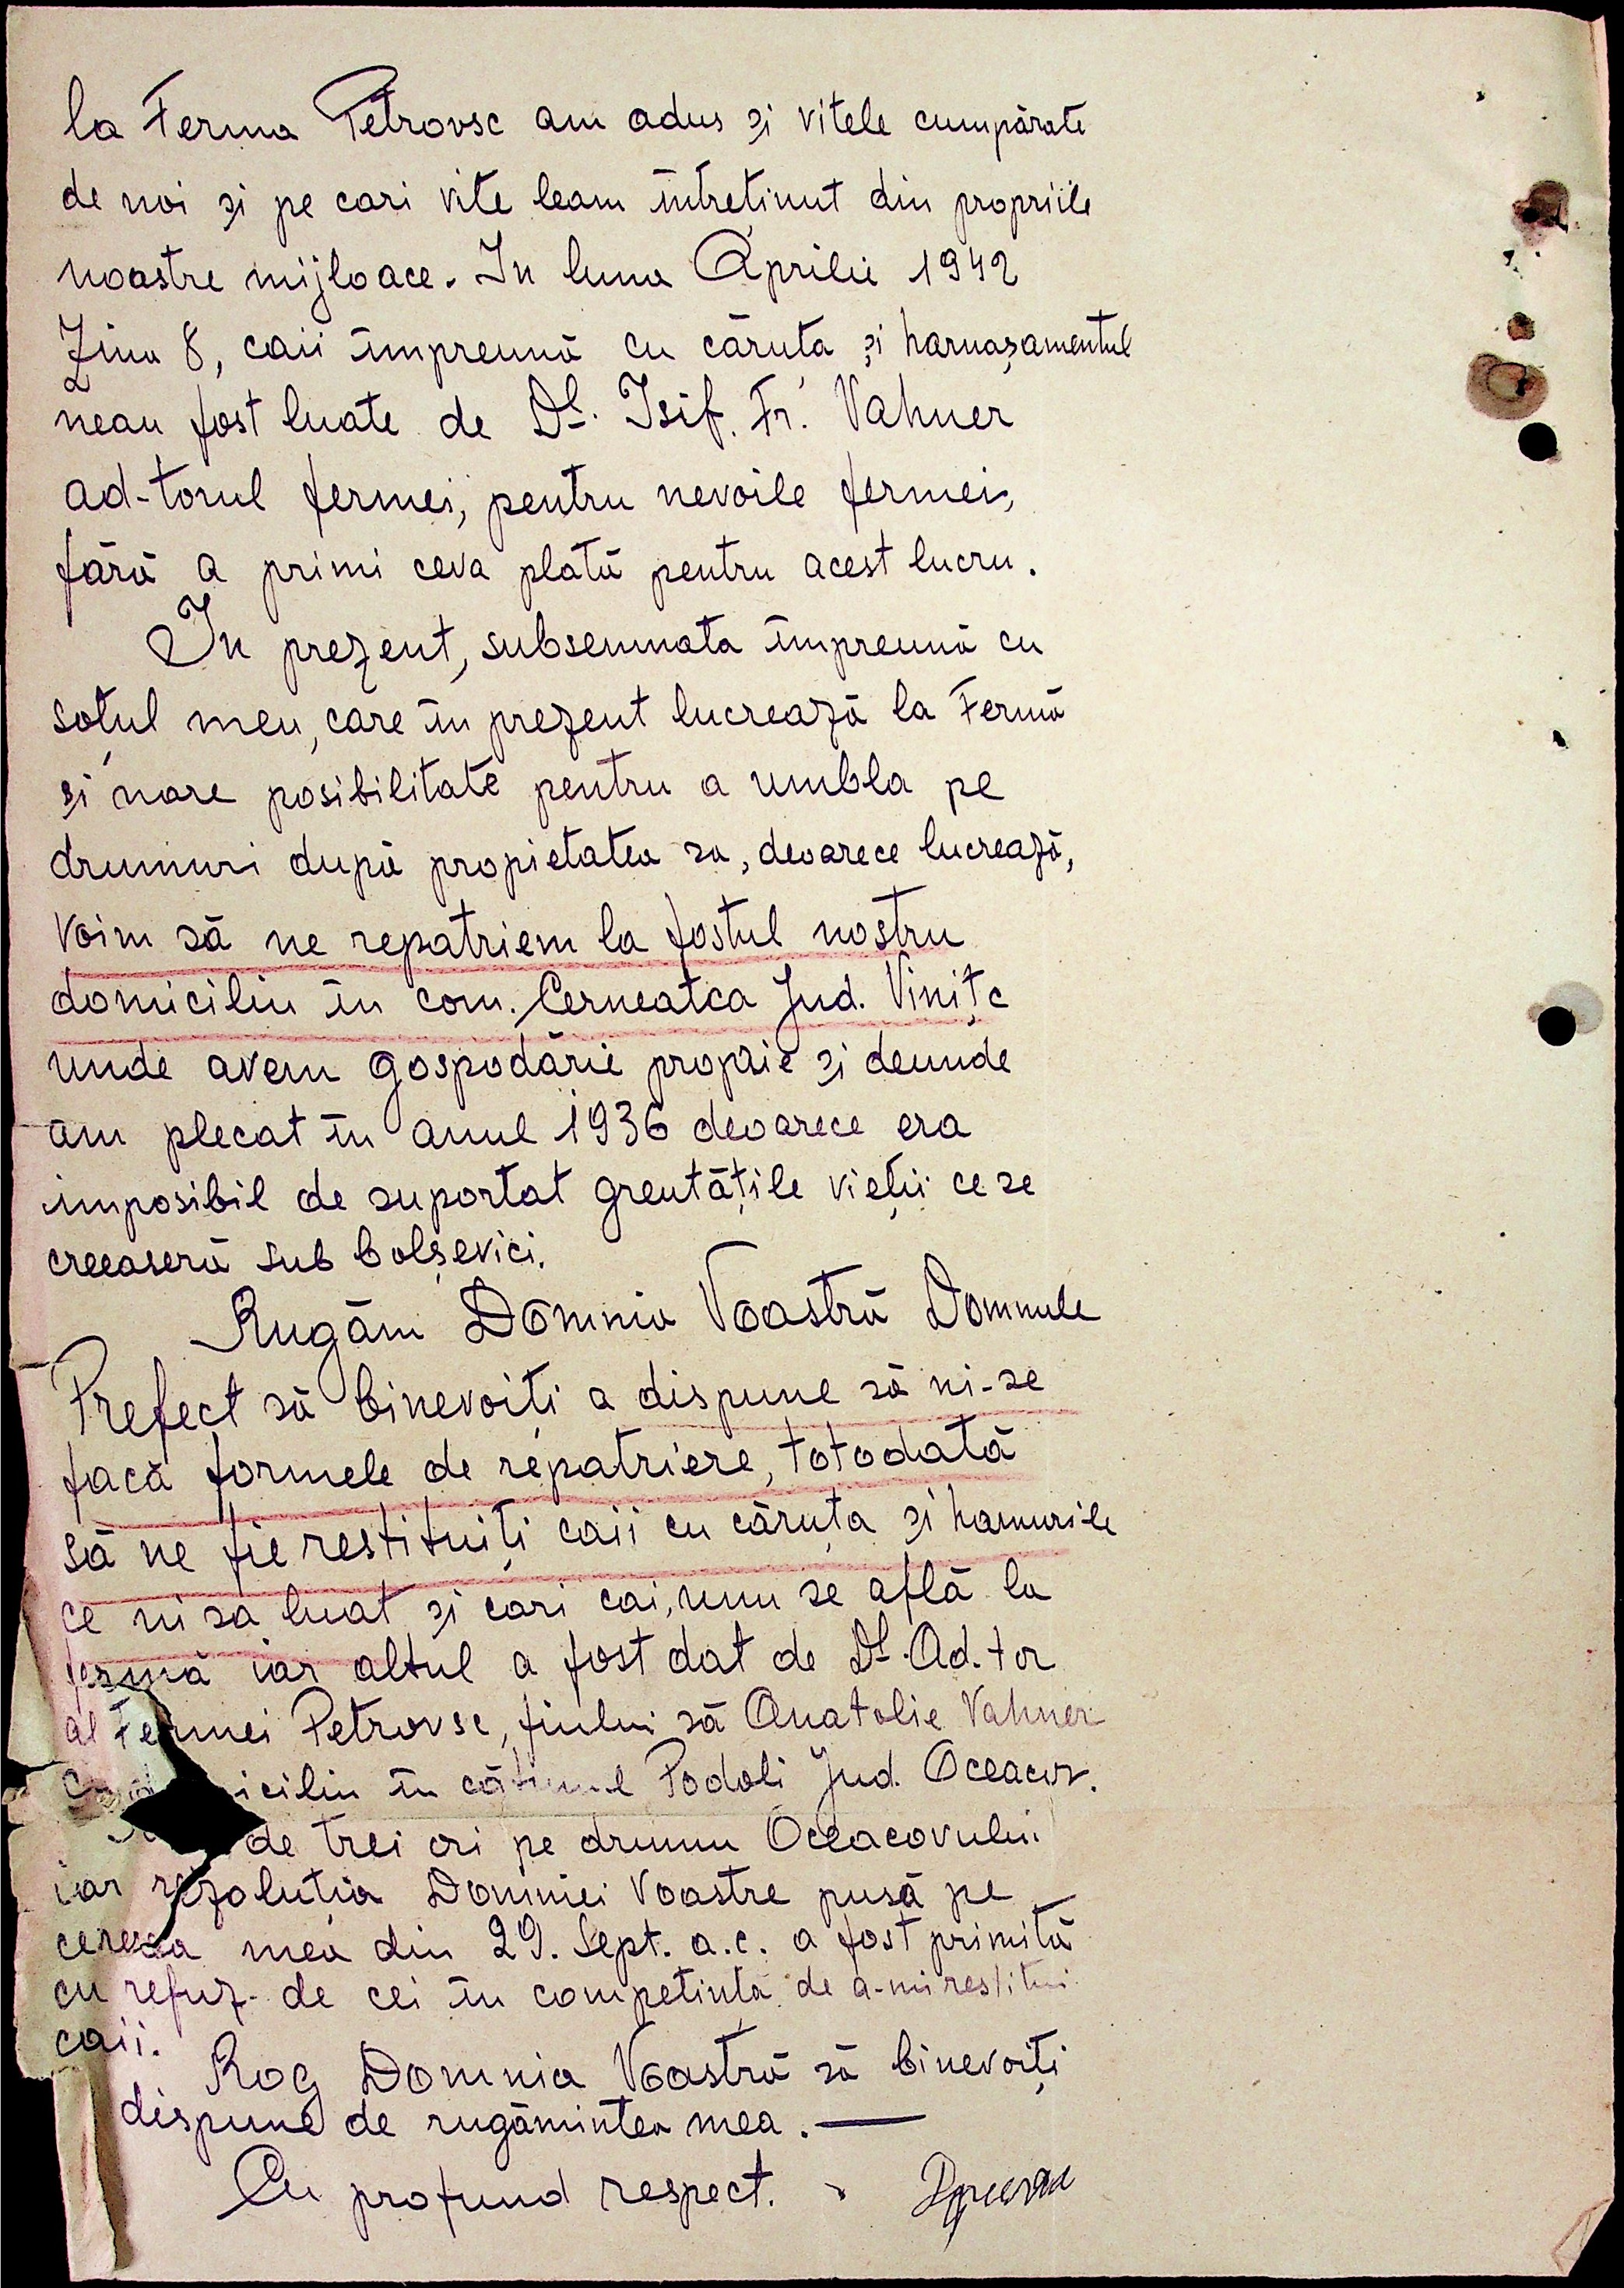 la Ferma Petrovsc am adus și vitele cumpărate
de noi și pe cari vite leam întreținut din propriile
noastre mijloace. In luna Aprilie 1942
Ziua 8, caii împreună cu căruța și harnașamentul
neau fost luate de Dl. Isif. Fr. Vahner
ad-torul fermei, pentru nevoile fermei,
fără a primi ceva plată pentru acest lucru.
In prezent, subsemnata împreună cu
soțul meu, care în prezent lucrează la Fermă
și nare posibilitate pentru a umbla pe
drumuri după propietatea sa, deoarece lucrează,
voim să ne repatriem la fostul nostru
domiciliu în com. Cerneatca Jud. Vinițc
unde avem gospodărie proprie și deunde
am plecat în anul 1936 deoarece era
imposibil de suportat greutățile vieții ce se
creeaseră sub bolșevici.
Rugăm Domnia Voastră Domnule
Prefect să binevoiți a dispune să ni-se
facă formele de repatriere, totodată
să ne fie restituiți caii cu căruța și hamurile
ce ni sa luat și cari cai, unu se află la
fermă iar altul a fost dat de Dl. Ad.tor
al Fermei Petrovsc, fiului să Anatolie Vahner
iciliu în cătunul Podoli Jud. Oceacov.
de trei ori pe drumu Oceacovului
iar rezoluția Domniei Voastre pusă pe
cererea mea din 29. Sept. a.c. a fost primită
cu refuz de cei în competința de a-mi restitui
caii.
Rog Domnia Voastră să binevoiți
dispune de rugămintea mea.—
Cu profund respect.